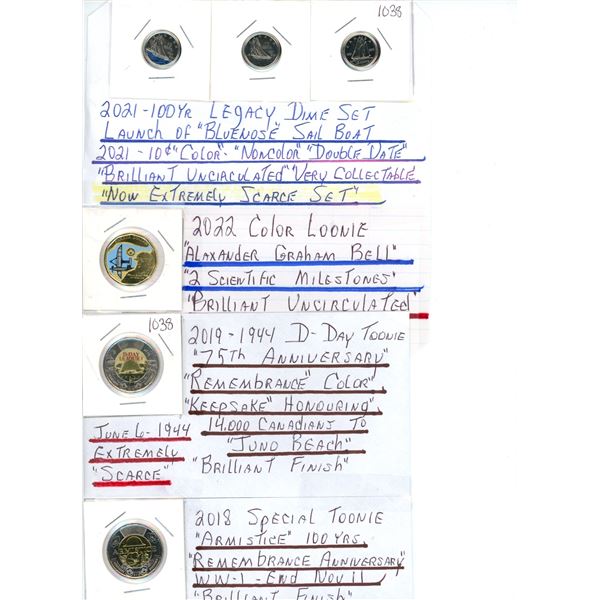 1038
2021-100Yr Legacy Dime Set
Launch of "Bluenose" Sail Boat
2021-10¢ "Color"- "Noncolor" "Double Date"
"Brilliant Uncirculated" "Very Collectable"
"Now Extremely Scarce Set"
2022 Color Loonie
"Alaxander Graham Bell"
"2 Scientific Milestones"
"Brilliant Uncirculated"
1038
2019-1944 D-Day Toonie
"75th Anniversary"
"Remembrance" Color"
"Keepsake" Honouring"
14,000 Canadians To
"Juno Beach"
"Brilliant Finish"
June 6-1944
Extremely
"Scarce"
2018 Special Toonie
"Armistice" 100 Yrs.
"Remembrance Anniversary"
WW-1-End Nov 11
"Brilliant Finish"